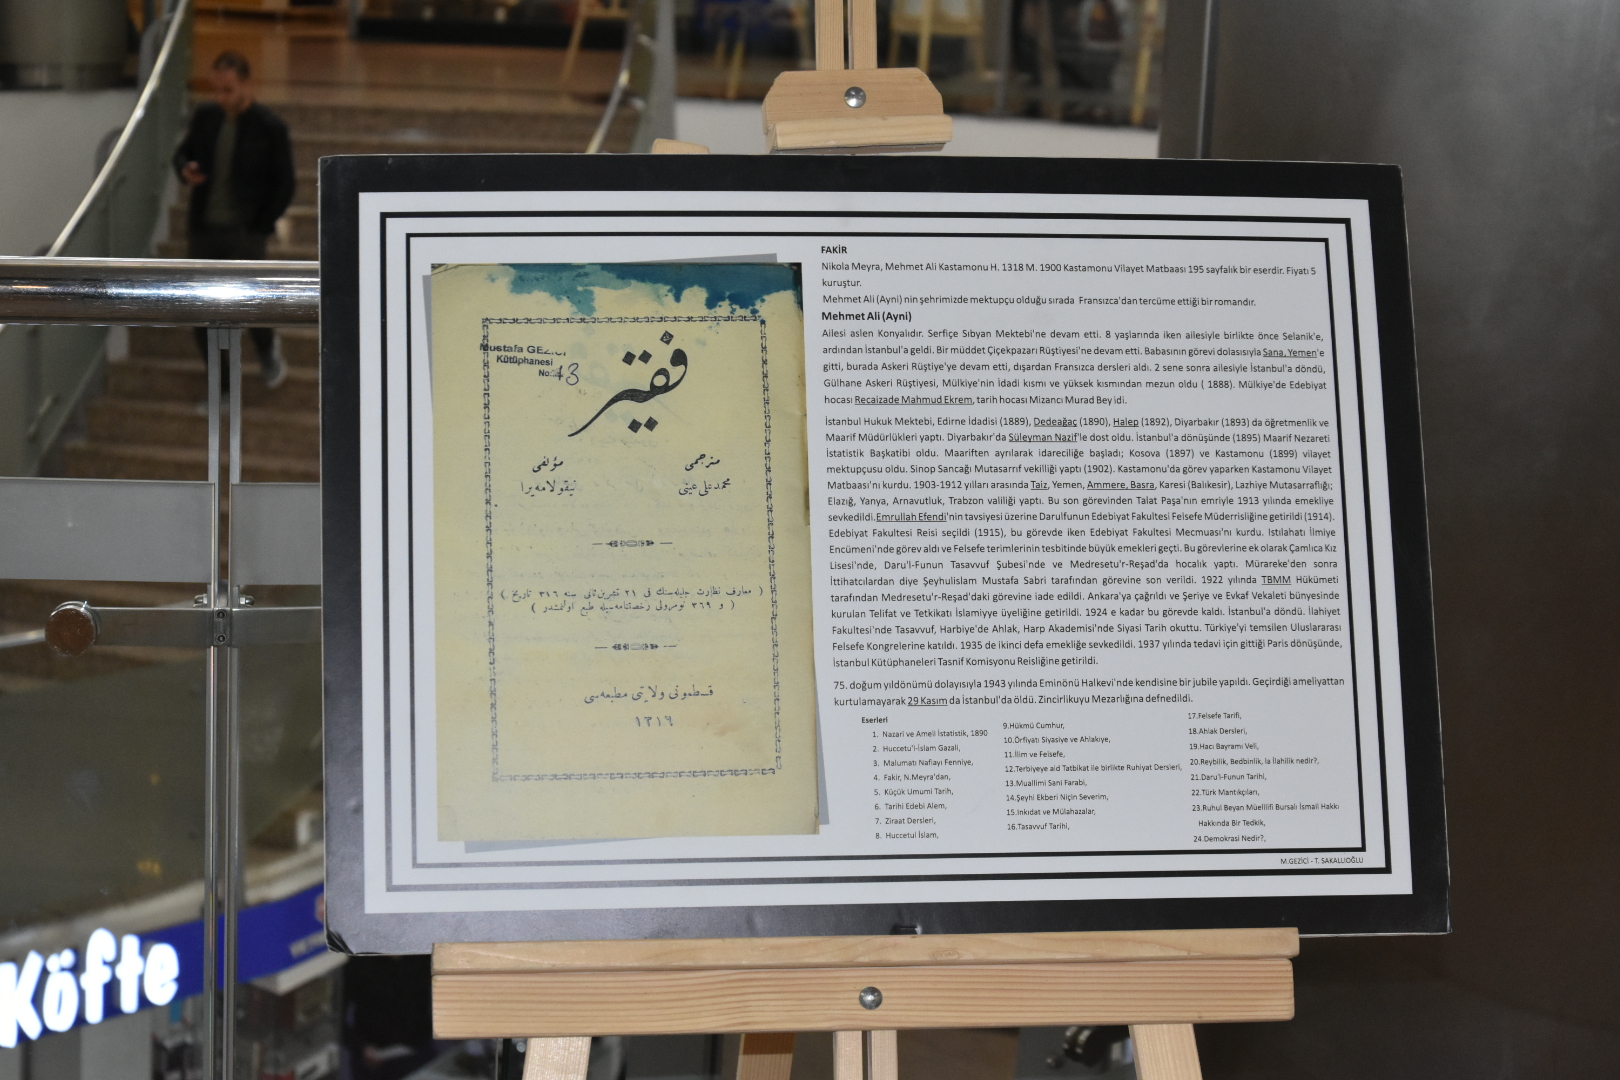 فقیر
Mustafa GEZİCİ
Kütüphanesi
No: 43
مؤلفی
نیقولا مه یرا
مترجمی
محمد علی عینی
( معارف نظارت جلیله سنك فی ٢١ تشرین ثانی سنه ٣١٦ تاریخ )
( و ٣٦٩ نومرولی رخصتنامه سیله طبع اولنمشدر )
قسطمونی ولایتی مطبعه سی
١٣١٩
FAKİR
Nikola Meyra, Mehmet Ali Kastamonu H. 1318 M. 1900 Kastamonu Vilayet Matbaası 195 sayfalık bir eserdir. Fiyatı 5
kuruştur.
Mehmet Ali (Ayni) nin şehrimizde mektupçu olduğu sırada Fransızca'dan tercüme ettiği bir romandır.
Mehmet Ali (Ayni)
Ailesi aslen Konyalıdır. Serfiçe Sıbyan Mektebi'ne devam etti. 8 yaşlarında iken ailesiyle birlikte önce Selanik'e,
ardından İstanbul'a geldi. Bir müddet Çiçekpazarı Rüştiyesi'ne devam etti. Babasının görevi dolasısıyla Sana, Yemen'e
gitti, burada Askeri Rüştiye'ye devam etti, dışardan Fransızca dersleri aldı. 2 sene sonra ailesiyle İstanbul'a döndü,
Gülhane Askeri Rüştiyesi, Mülkiye'nin İdadi kısmı ve yüksek kısmından mezun oldu ( 1888). Mülkiye'de Edebiyat
hocası Recaizade Mahmud Ekrem, tarih hocası Mizancı Murad Bey idi.
İstanbul Hukuk Mektebi, Edirne İdadisi (1889), Dedeağaç (1890), Halep (1892), Diyarbakır (1893) da öğretmenlik ve
Maarif Müdürlükleri yaptı. Diyarbakır'da Süleyman Nazif'le dost oldu. İstanbul'a dönüşünde (1895) Maarif Nezareti
İstatistik Başkatibi oldu. Maariften ayrılarak idareciliğe başladı; Kosova (1897) ve Kastamonu (1899) vilayet
mektupçusu oldu. Sinop Sancağı Mutasarrıf vekilliği yaptı (1902). Kastamonu'da görev yaparken Kastamonu Vilayet
Matbaası'nı kurdu. 1903-1912 yılları arasında Taiz, Yemen, Ammere, Basra, Karesi (Balıkesir), Lazhiye Mutasarraflığı;
Elazığ, Yanya, Arnavutluk, Trabzon valiliği yaptı. Bu son görevinden Talat Paşa'nın emriyle 1913 yılında emekliye
sevkedildi.Emrullah Efendi'nin tavsiyesi üzerine Darulfunun Edebiyat Fakultesi Felsefe Müderrisliğine getirildi (1914).
Edebiyat Fakultesi Reisi seçildi (1915), bu görevde iken Edebiyat Fakultesi Mecmuası'nı kurdu. Istılahatı İlmiye
Encümeni'nde görev aldı ve Felsefe terimlerinin tesbitinde büyük emekleri geçti. Bu görevlerine ek olarak Çamlıca Kız
Lisesi'nde, Daru'l-Funun Tasavvuf Şubesi'nde ve Medresetu'r-Reşad'da hocalık yaptı. Mürareke'den sonra
İttihatcılardan diye Şeyhulislam Mustafa Sabri tarafından görevine son verildi. 1922 yılında TBMM Hükümeti
tarafından Medresetu'r-Reşad'daki görevine iade edildi. Ankara'ya çağrıldı ve Şeriye ve Evkaf Vekaleti bünyesinde
kurulan Telifat ve Tetkikatı İslamiyye üyeliğine getirildi. 1924 e kadar bu görevde kaldı. İstanbul'a döndü. İlahiyet
Fakultesi'nde Tasavvuf, Harbiye'de Ahlak, Harp Akademisi'nde Siyasi Tarih okuttu. Türkiye'yi temsilen Uluslararası
Felsefe Kongrelerine katıldı. 1935 de ikinci defa emekliğe sevkedildi. 1937 yılında tedavi için gittiği Paris dönüşünde,
İstanbul Kütüphaneleri Tasnif Komisyonu Reisliğine getirildi.
75. doğum yıldönümü dolayısıyla 1943 yılında Eminönü Halkevi'nde kendisine bir jubile yapıldı. Geçirdiği ameliyattan
kurtulamayarak 29 Kasım da İstanbul'da öldü. Zincirlikuyu Mezarlığına defnedildi.
Eserleri
1. Nazari ve Ameli İstatistik, 1890
2. Huccetu'l-İslam Gazali,
3. Malumatı Nafiayı Fenniye,
4. Fakir, N.Meyra'dan,
5. Küçük Umumi Tarih,
6. Tarihi Edebi Alem,
7. Ziraat Dersleri,
8. Huccetul İslam,
9.Hükmü Cumhur,
10.Örfiyatı Siyasiye ve Ahlakıye,
11.İlim ve Felsefe,
12.Terbiyeye aid Tatbikat ile birlikte Ruhiyat Dersleri,
13.Muallimi Sani Farabi,
14.Şeyhi Ekberi Niçin Severim,
15.İnkıdat ve Mülahazalar,
16.Tasavvuf Tarihi,
17.Felsefe Tarifi,
18.Ahlak Dersleri,
19.Hacı Bayramı Veli,
20.Reybilik, Bedbinlik, la İlahilik nedir?,
21.Daru'l-Funun Tarihi,
22.Türk Mantıkçıları,
23.Ruhul Beyan Müellifi Bursalı İsmail Hakkı
Hakkında Bir Tedkik,
24.Demokrasi Nedir?,
M.GEZİCİ - T. SAKALLIOĞLU
Köfte